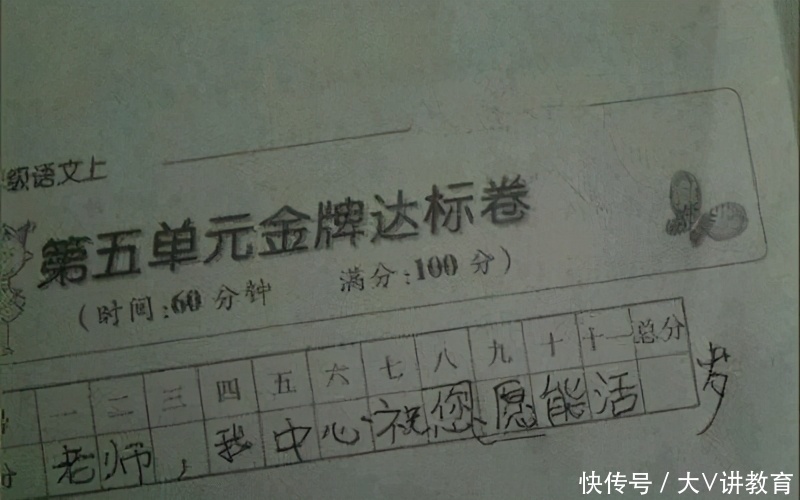 级语文上
第五单元金牌达标卷
(时间:60 分钟 满分:100 分)
一 二 三 四 五 六 七 八 九 十 十一 总分
老师，我中心祝您愿能活 岁
快传号 / 大V讲教育